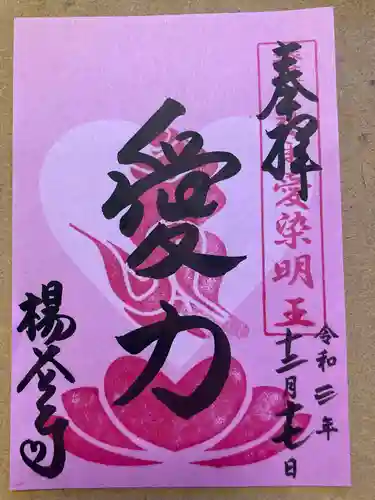 奉拝
愛染明王
令和二年
十二月十七日
愛力
楊谷寺